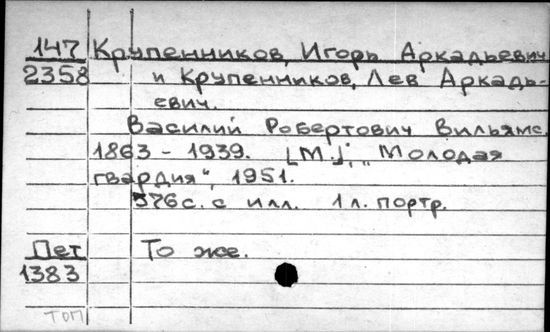 147 Крупенников, Игорь Аркадьевич
2358 и Крупенников, Лев Аркадь-
евич.
Василий Робертович Вильямс.
1863 - 1939. [М.], „Молодая
гвардия", 1951.
376 с. с илл. 1 л. портр.
Пет То же.
1383
ТОП